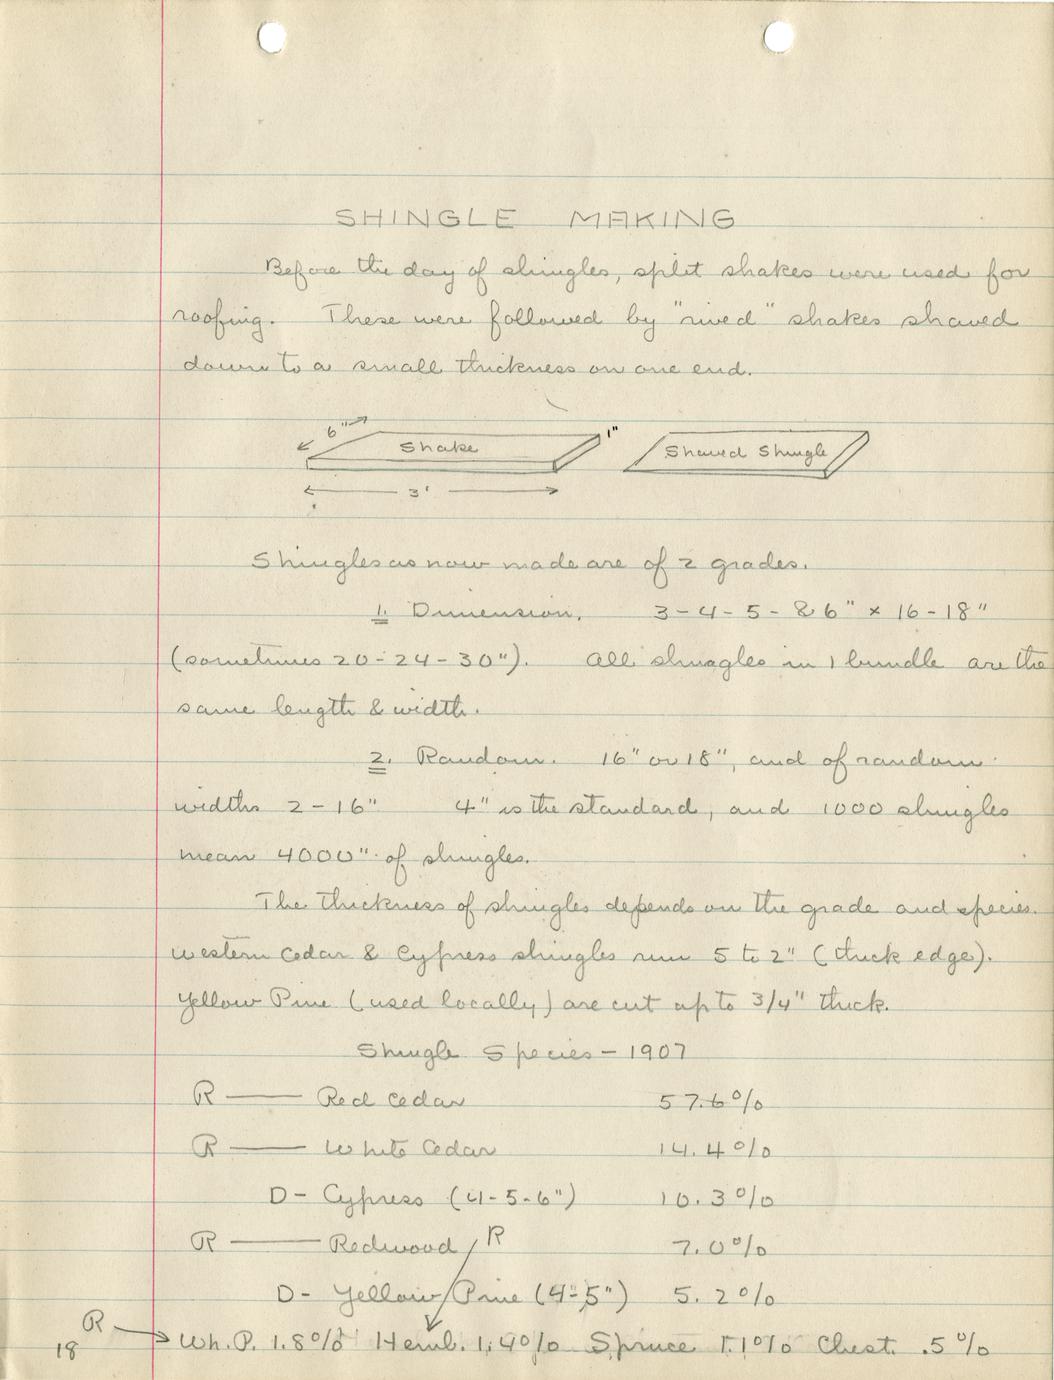 SHINGLE MAKING
Before the day of shingles, split shakes were used for
roofing. These were followed by "rived" shakes shaved
down to a small thickness on one end.
6" Shake 1" Shaved Shingle
3'
Shingles as now made are of 2 grades.
1. Dimension. 3-4-5-&6" x 16-18"
(sometimes 20-24-30"). All shingles in 1 bundle are the
same length & width.
2. Random. 16" or 18", and of random
widths 2-16" 4" is the standard, and 1000 shingles
mean 4000" of shingles.
The thickness of shingles depends on the grade and species.
Western Cedar & Cypress shingles run 5 to 2" (thick edge).
Yellow Pine (used locally) are cut up to 3/4" thick.
Shingle Species - 1907
R — Red Cedar 57.6%
R — White Cedar 14.4%
D - Cypress (4-5-6") 10.3%
R — Redwood R 7.0%
D - Yellow Pine (4-5") 5.2%
R
18 Wh. P. 1.8% Heml. 1.4% Spruce 1.1% Chest. .5%